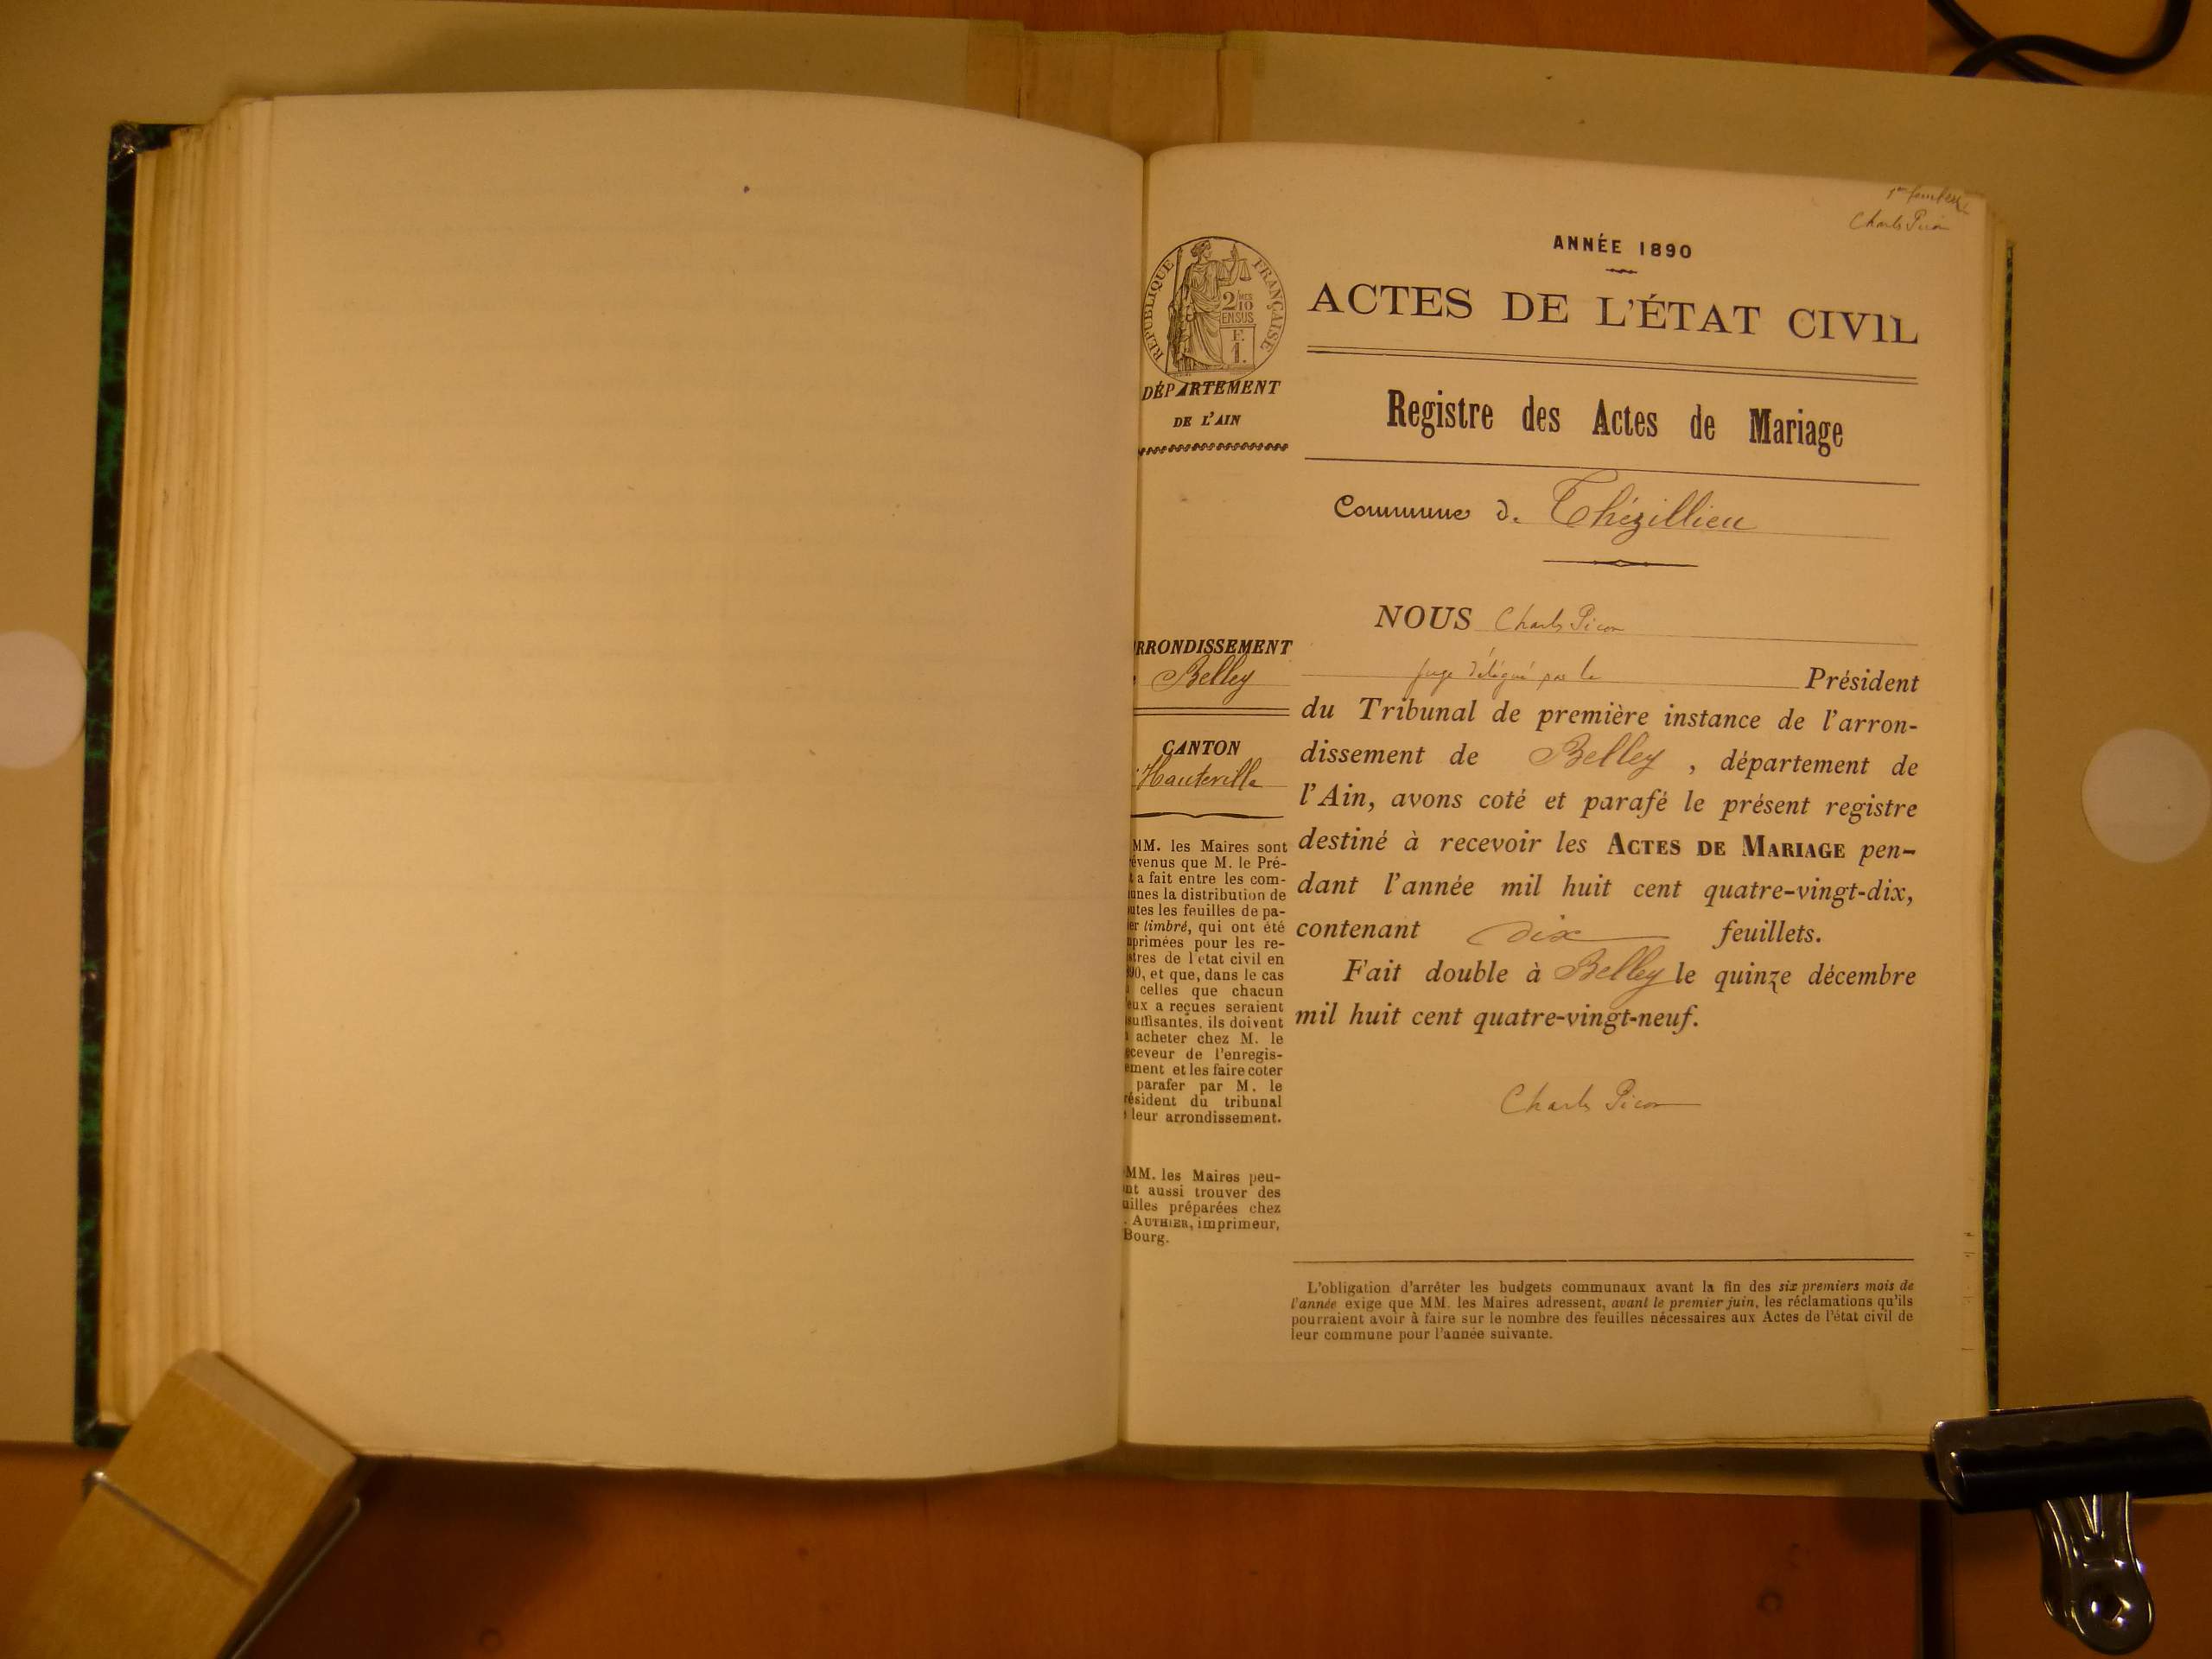 1er feuillet
Charles Picon
ANNÉE 1890
ACTES DE L'ÉTAT CIVIL
Registre des Actes de Mariage
Commune de Thézillieu
NOUS Charles Picon
juge délégué par le Président
du Tribunal de première instance de l'arron-
dissement de Belley , département de
l'Ain, avons coté et parafé le présent registre
destiné à recevoir les ACTES DE MARIAGE pen-
dant l'année mil huit cent quatre-vingt-dix,
contenant dix feuillets.
Fait double à Belley le quinze décembre
mil huit cent quatre-vingt-neuf.
Charles Picon
L'obligation d'arrêter les budgets communaux avant la fin des six premiers mois de
l'année exige que MM. les Maires adressent, avant le premier juin, les réclamations qu'ils
pourraient avoir à faire sur le nombre des feuilles nécessaires aux Actes de l'état civil de
leur commune pour l'année suivante.
RÉPUBLIQUE FRANÇAISE
2/10
EN SUS
F.
1.
DÉPARTEMENT
DE L'AIN
RRONDISSEMENT
Belley
CANTON
Hauteville
MM. les Maires sont
évenus que M. le Pré-
t a fait entre les com-
unes la distribution de
utes les feuilles de pa-
er timbré, qui ont été
primées pour les re-
stres de l'état civil en
90, et que, dans le cas
celles que chacun
eux a reçues seraient
suffisantes, ils doivent
acheter chez M. le
eceveur de l'enregis-
ement et les faire coter
parafer par M. le
résident du tribunal
leur arrondissement.
MM. les Maires peu-
nt aussi trouver des
uilles préparées chez
. AUTHIER, imprimeur,
Bourg.